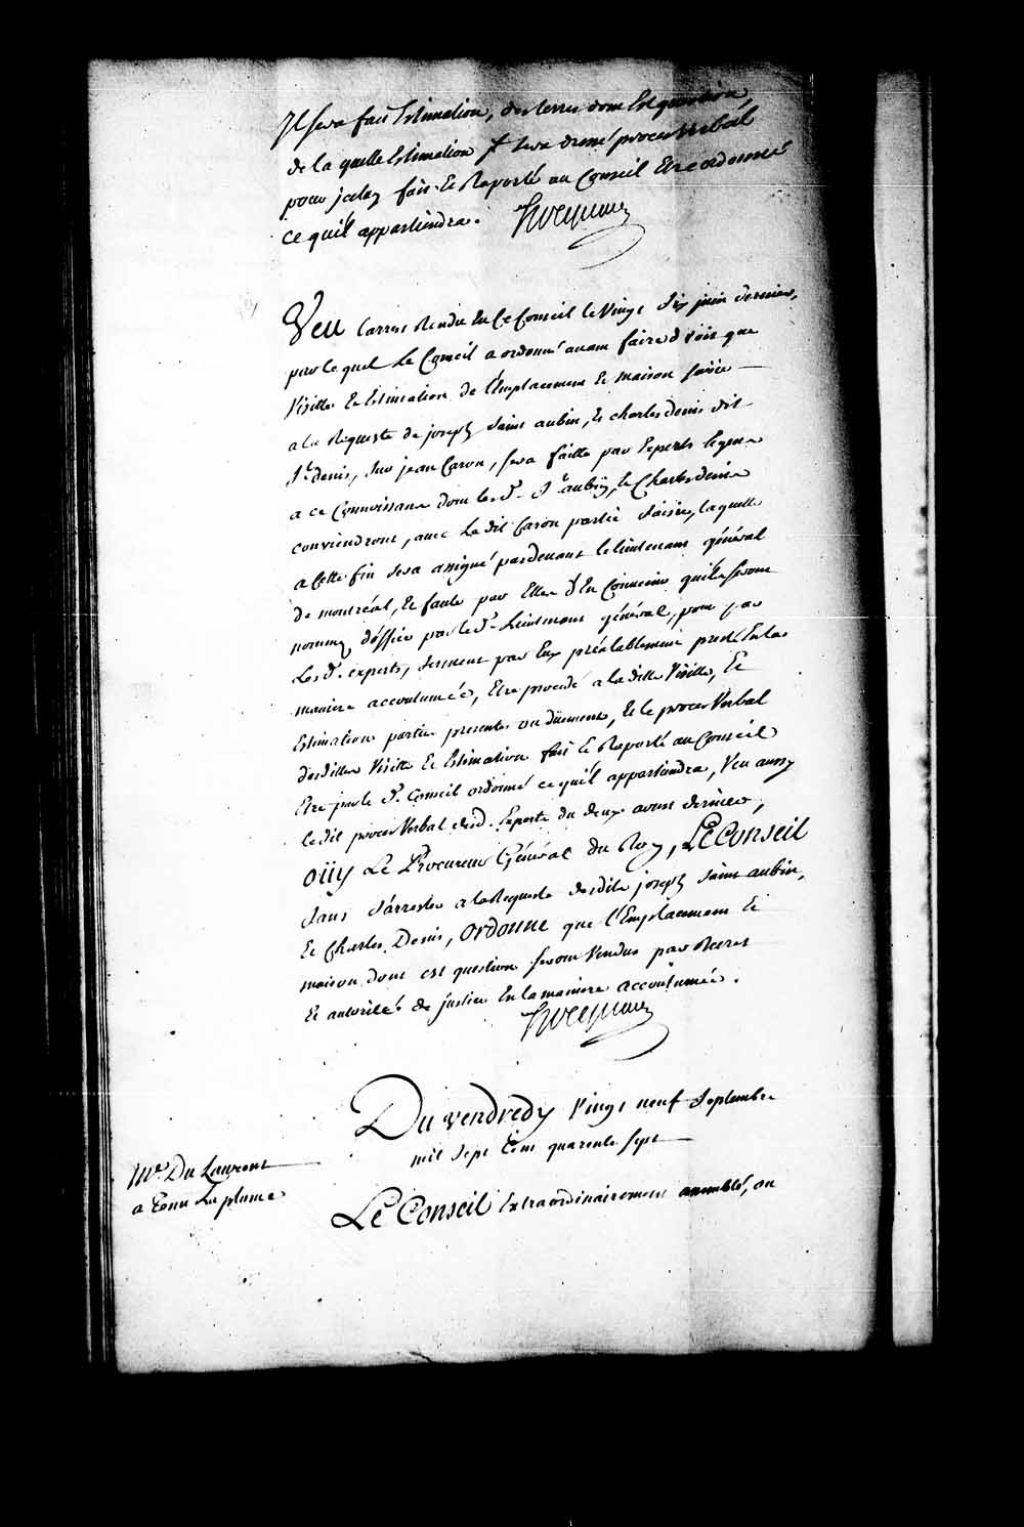 Il sera fait Estimation, des terres dont Est question,
de la quelle Estimation Il sera dressé procez Verbal
pour jceluy fait Et Raporté au Conseil Etre ordonné
ce qu'il appartiendra. Hocquart
Veu Larrest Rendu En Ce Conseil le Vingt Six juin dernier,
par lequel Le Conseil a ordonné avant faire droit que
Visitte Et Estimation de l'Emplacement Et maison saisie
a la Requeste de joseph Saint aubin, Et charles denis dit
St. denis, sur jean Caron, sera faitte par Experts Et gens a
a ce Connoissant dont les d. St. aubin, Et Charles denis
conviendront, avec Le dit Caron partie Saisie, laquelle
a Cette fin sera assigné pardevant le lieutenant général
de montréal, Et faute par Elles d'En Convenir qu'ils seront
nommez d'office par le d. Lieutenant général, pour par
Les d. experts, Serment par Eux préalablement presté En la
maniere accoutumée, Etre procedé a la ditte Visitte, Et
Estimation partie presente ou düement, Et le procez Verbal
desdittes Visitte Et Estimation fait Et Raporté au Conseil
Etre par le d. Conseil ordonné ce qu'il appartiendra, Veu aussy
le dit procez Verbal desd. Experts du deux aoust dernier,
Oüy Le Procureur Général du Roy, Le Conseil
Sans S'arrester a la Requeste desdits joseph Saint aubin,
Et Charles Denis, ordonne que l'Emplacement Et
maison dont est question seront Vendus par decret
Et autorité de justice En la maniere accoutumée.
Hocquart
Du vendredy Vingt neuf Septembre
mil Sept Cent quarente Sept
Me. Du Laurent
a Tenu La plume
Le Conseil Extraordinairement assemblé, ou